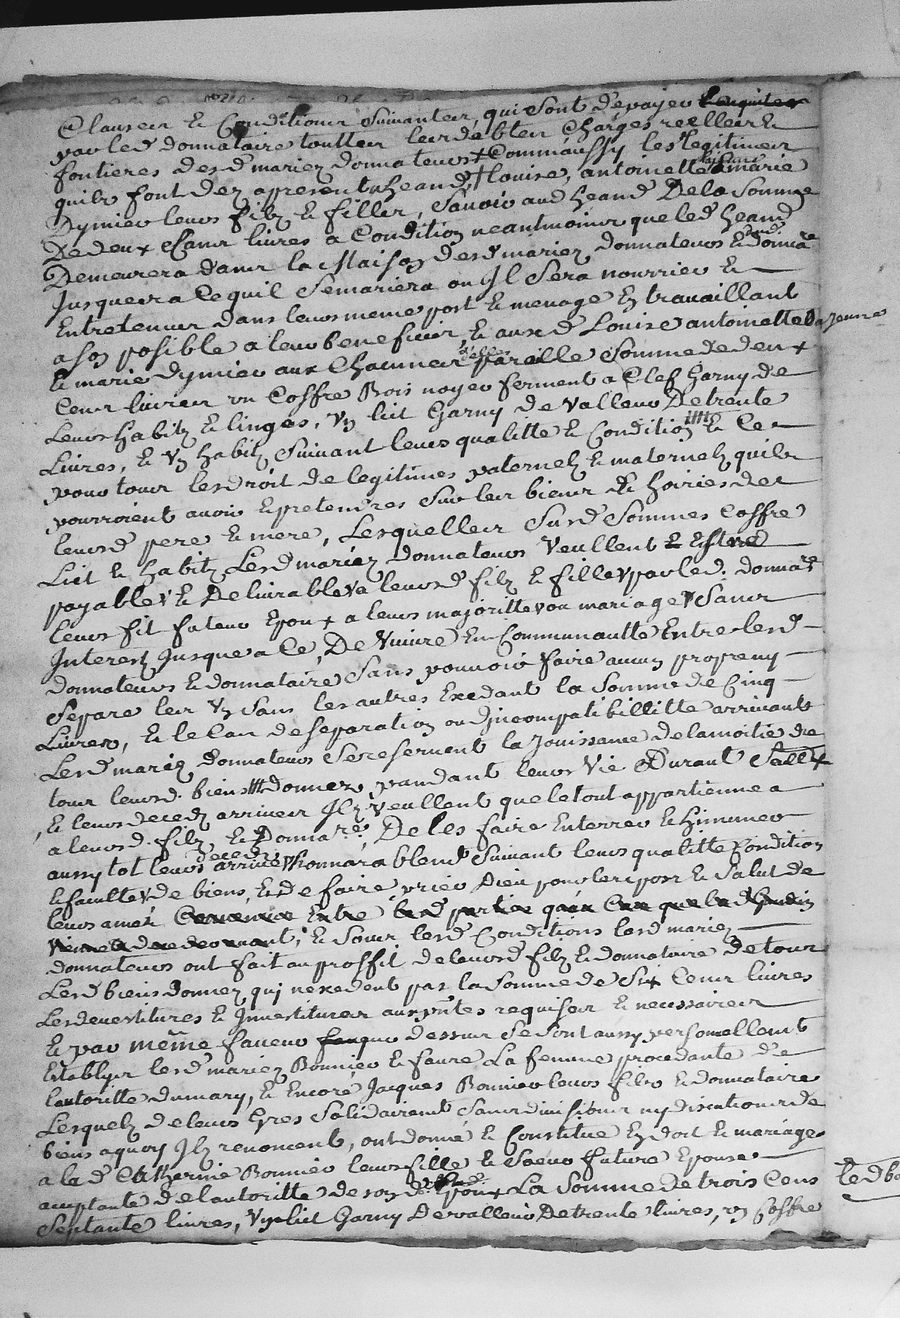 Clauses et Conditions suivantes, qui sont de payer
par led donnataire touttes leurs debtes Charges reelles et
fontieres desd mariez donnateurs Comm'aussy les legitimes
quils font dez appresent a Jean, louise, antoinette & marie
Dymier leurs filz et filles, Scavoir aud Jean De la somme
De deux Cens livres a Condition neantmoins que led Jean
Demeurera dans la Maison desd mariez donnateurs & donnre
Jusques a ce quil se mariera ou Il sera nourrier et
Entretenus dans leur meme post et menage En travaillant
a son posible a leur benefice, et auxd Louise antoinette
et marie dymier aux Chacune d'elles pareille somme de deux
Cens livres un Coffre Bois noyer ferment a Clef Garny de
Leurs habitz et linges, Un lict Garny de valleur De trente
Livres, et Un habitz suivant leurs qualitte et Condition et Ce
pour tous les droit de legitimes paternelz et maternelz quils
pourroient avoir et pretendres sur les biens et hoiries de
leursd pere et mere, Lesquelles susd sommes Coffre
Lict et habitz Lesd mariez donnateurs Veullent Estre
payables et Delivrables a leursd filz et filles par led. donnare
leurs fil futeur Epoux a leurs majoritte ou mariage Sans
Interestz Jusque a Ce, De Vivre En Communautte Entre lesd
donnateurs et donnataire Sans pouvoir faire aucun propre ny
separe les Un sans les autres Exedant la somme de Cinq
Livres, et le Cas de separation ou Incompatibillitte arrivant
Lesd mariez donnateurs se reservent la Jouissance de la moitie de
tous leursd. biens donnez, pandant leurs Vie Durant
et leurs decedz arrives Ilz Veullent que le tout appartienne a
a leursd. filz, et Donnare, De les faire Enterrer et Ihinumer
aussy tot leurs decedz arrives honnarablent suivant leurs qualitte Condition
et faculte de biens, et de faire prier Dieu pour le repos et salut de
leurs ames et sous lesd Conditions lesd mariez
donnateurs ont fait au proffit de leursd filz et donnataire de tous
Lesd biens donnez qui nexedent pas la somme de six Cens livres
Les devestitures et Investitures aux pntes requises et necessaires
Et par meme faveur dessus se sont aussy personnellent
Establys lesd mariez Bonnier et faure La femme procedante de
lautoritte dumary, et Encore Jacques Bonnier leurs filz et donnataire
Lesquelz de leurs Gres solidairemt sans division ny discution de
biens a quoy Ilz renoncent, ont donné et Constitué En dot et mariage
a lad Catherine Bonnier leurs fille et saeur future Epouse
acceptante de lautoritte de son d. Epoux La somme de trois Cens
septante livres, Un lict Garny De valleur De trente livres, un Coffre